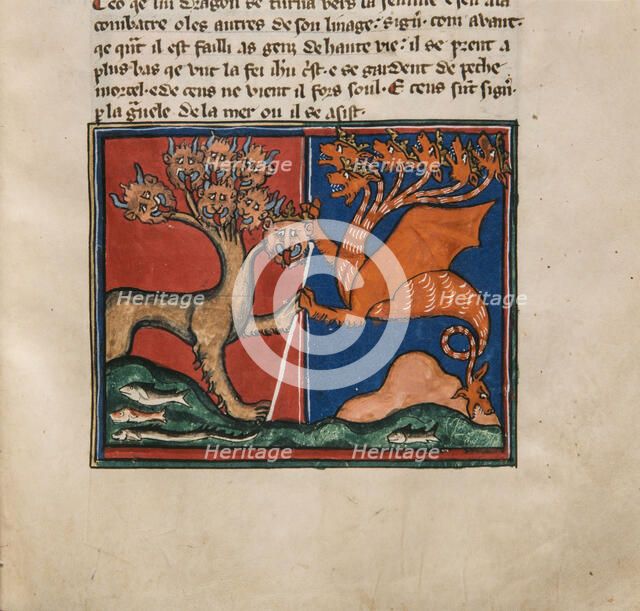 ceo qe lui Dragon se turna vers la femme e seu ala
combatre o les autres de son linage: Sign. com avant.
qe qnt il est failli as genz de haute vie: il se prent a
plus bas qe unt la fei ihu crist. e se gardent de peche
mortel. e de ceus ne vient il fors soul. E ceus sunt sign.
p la gnele de la mer ou il se asist.
Heritage Heritage Heritage
Heritage Heritage Heritage
Heritage Heritage Heritage